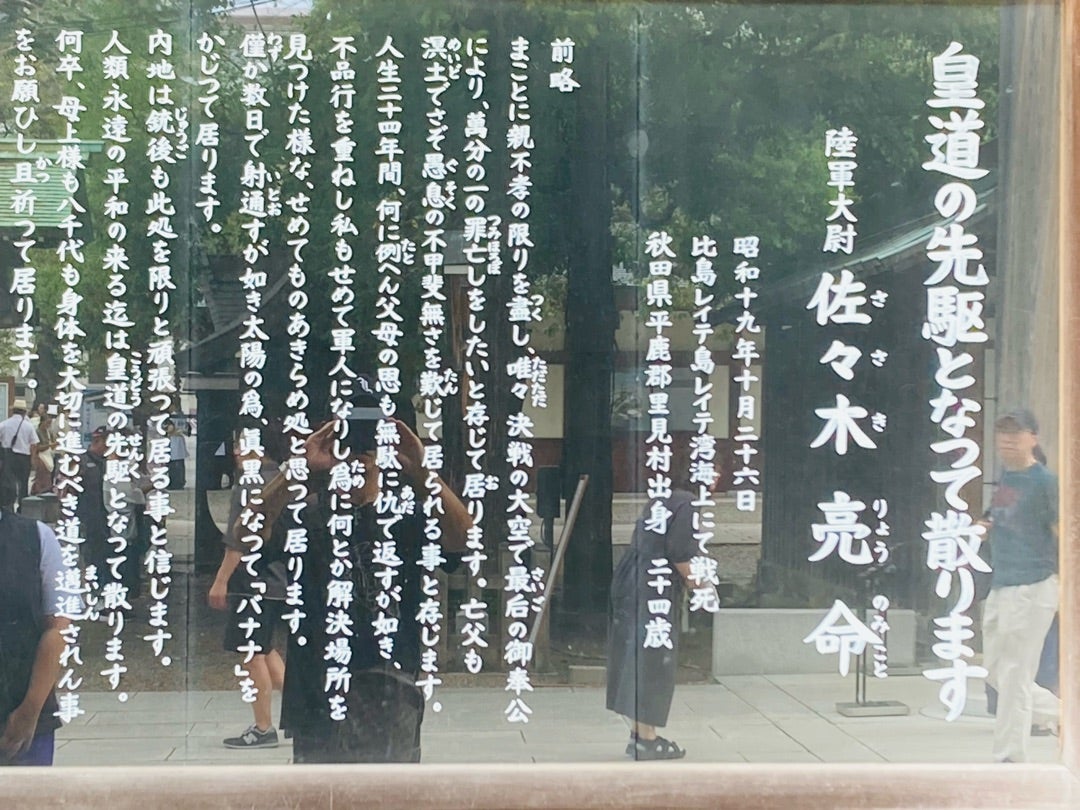 皇道の先駆となつて散ります
陸軍大尉 佐々木 亮 命
昭和十九年十月二十六日
比島レイテ島レイテ湾海上にて戦死
秋田県平鹿郡里見村出身 二十四歳
前略
まことに親不孝の限りを盡し、唯々決戦の大空で最后の御奉公
により、萬分の一の罪亡しをしたいと存じて居ります。亡父も
溟土でさぞ愚息の不甲斐無さを歎じて居られる事と存じます。
人生二十四年間、何に例へん父母の恩も無駄に仇で返すが如き、
不品行を重ねし私もせめて軍人になりし為に何とか解決場所を
見つけた様な、せめてものあきらめ処と思つて居ります。
僅か数日で射通すが如き太陽の為、眞黒になつて「バナナ」を
かじつて居ります。
内地は銃後も此処を限りと頑張つて居る事と信じます。
人類永遠の平和の来る迄は皇道の先駆となつて散ります。
何卒、母上様も八千代も身体を大切に進むべき道を邁進されん事
をお願ひし且祈つて居ります。